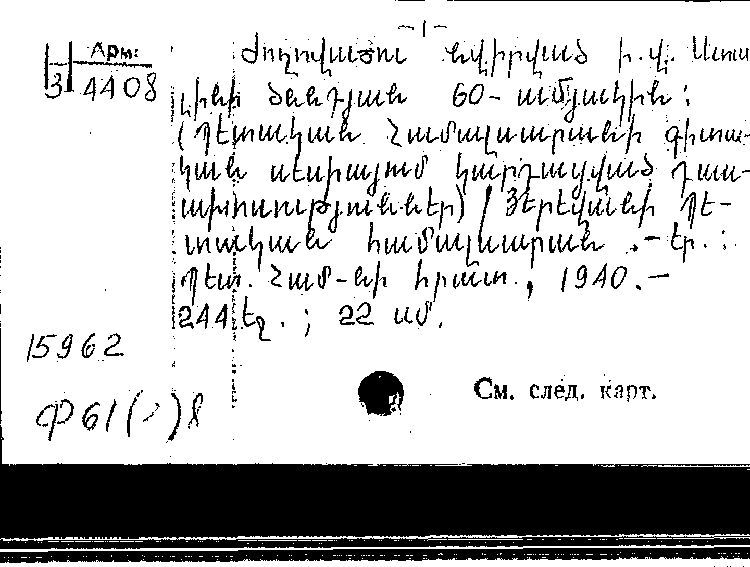 -1-
Арм:
3 4408
Ժողովածու նվիրված Ի.Վ. Ստա-
լինի ծննդյան 60-ամյակին:
(Պետական Համալսարանի գիտա-
կան սեսիայում կարդացված դաս-
ախոսություններ) / Երևանի Պե-
տական համալսարան .- Եր.:
Պետ. Համ-նի հրատ., 1940.-
244 էջ. ; 22 սմ.
15962
Ф61( )8
См. след. карт.